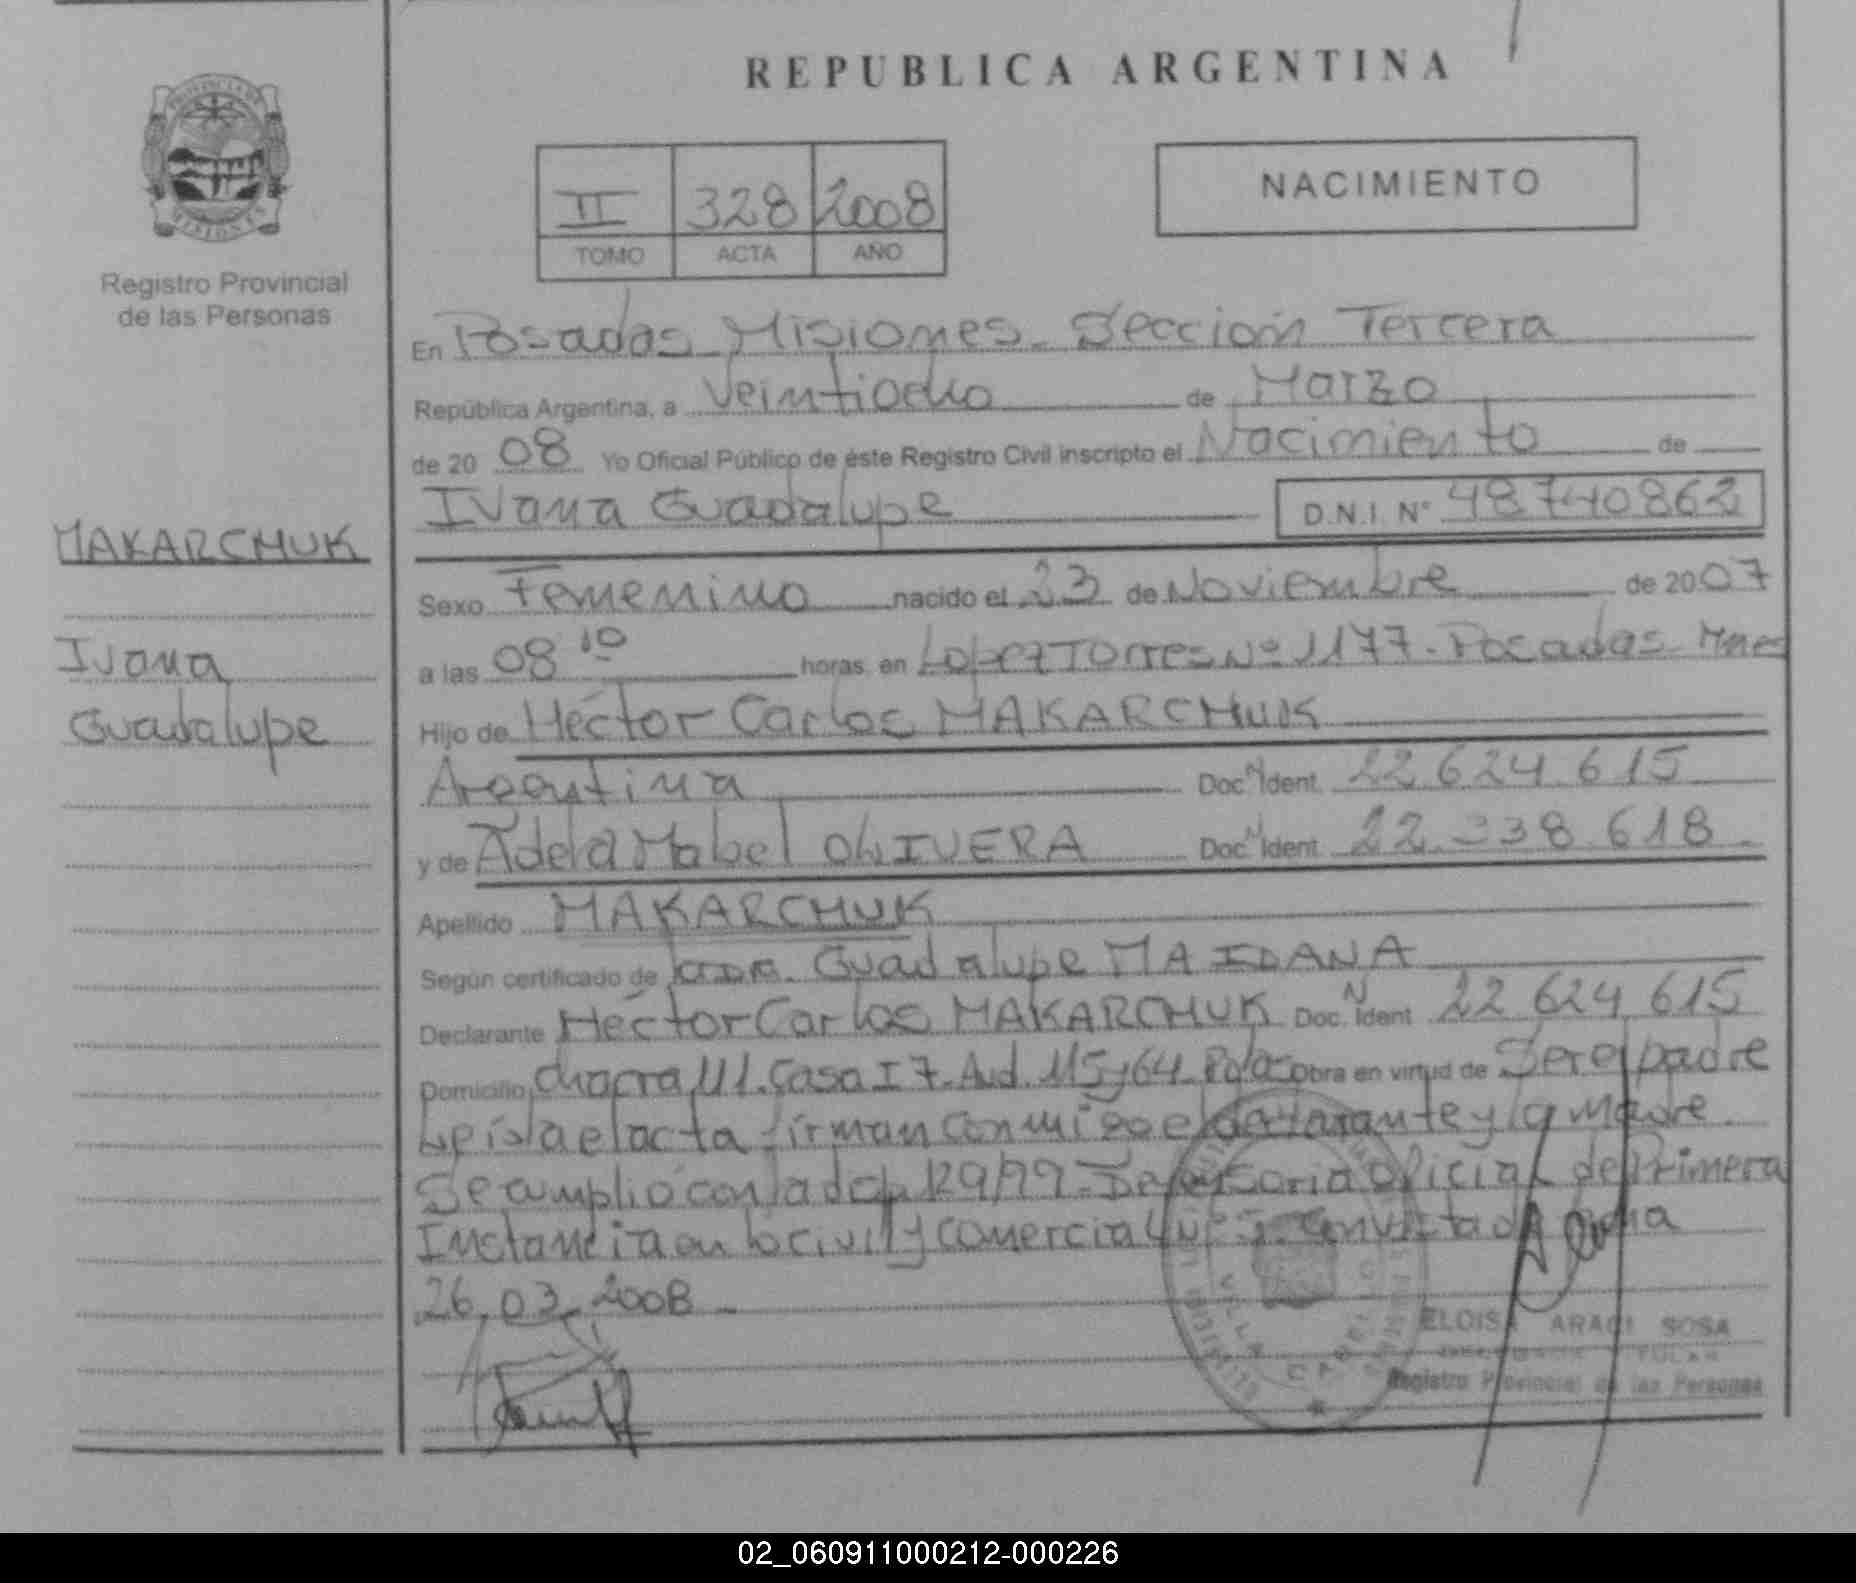 REPUBLICA ARGENTINA
PROVINCIA DE
MISIONES
Registro Provincial
de las Personas
II 328 2008
TOMO ACTA AÑO
NACIMIENTO
En Posadas Misiones. Sección Tercera
República Argentina, a Veintiocho de Marzo
de 20 08 Yo Oficial Público de éste Registro Civil inscripto el Nacimiento de
Ivana Guadalupe D.N.I. N° 48740862
MAKARCHUK
Ivana
Guadalupe
Sexo Femenino nacido el 23 de Noviembre de 20 07
a las 08 10 horas, en Lopez Torres Nº 1177. Posadas Mnes
Hijo de Héctor Carlos MAKARCHUK
Argentina Doc. N Ident. 22.624.615
y de Adela Mabel OLIVERA Doc. N Ident. 22.338.618
Apellido MAKARCHUK
Según certificado de Guadalupe MAIDANA
Declarante Héctor Carlos MAKARCHUK Doc. N Ident. 22 624 615
Domicilio Chacra 111. Casa I 7. Avd. 115 y 64 Pdas obra en virtud de Ser el padre
Leída el acta firman conmigo el declarante y la Madre
Se cumplió con la 129/99 - Defensoria Oficial de Primera
Instancia en lo civil y comercial con vista de fecha
26.03.2008
VILLA CABELLO
ELOISA ARACI SOSA
Registro Provincial de las Personas
02_060911000212-000226